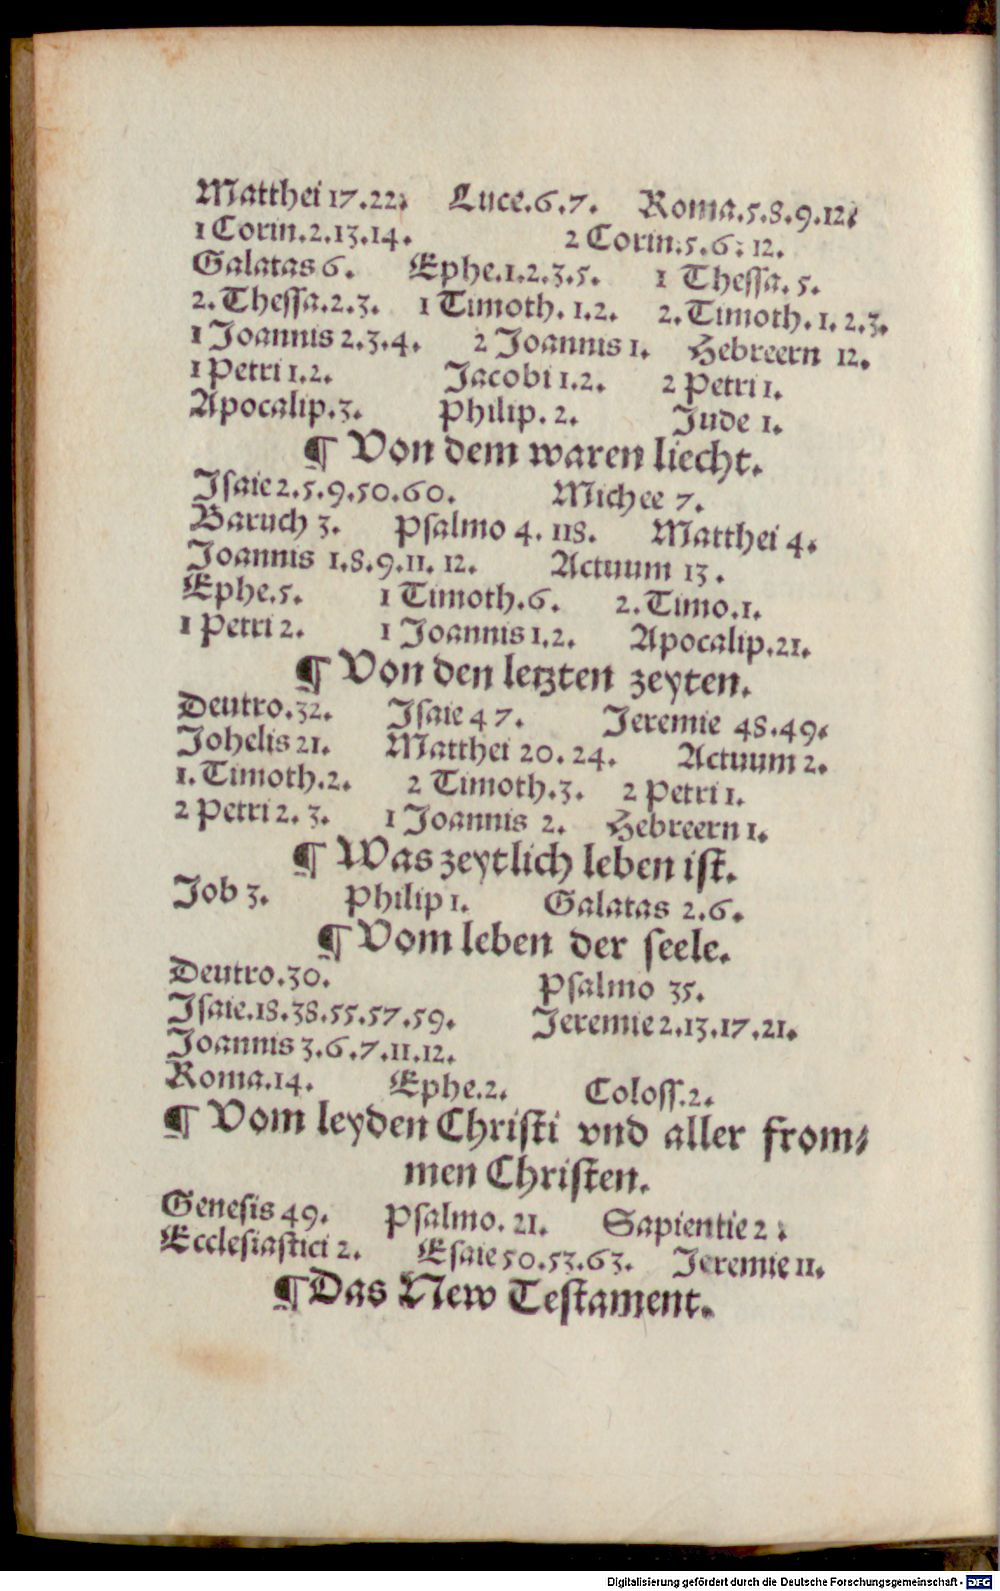 Matthei 17.22. Luce.6.7. Roma.5.8.9.12.
1 Corin.2.13.14. 2 Corin.5.6.12.
Galatas 6. Ephe.1.2.3.5. 1 Thessa.5.
2.Thessa.2.3. 1 Timoth. 1.2. 2.Timoth.1.2.3.
1 Joannis 2.3.4. 2 Joannis 1. Hebreern 12.
1 Petri 1.2. Jacobi 1.2. 2 Petri 1.
Apocalip.3. Philip.2. Jude 1.
¶ Von dem waren liecht.
Isaie 2.5.9.50.60. Michee 7.
Baruch 3. Psalmo 4.118. Matthei 4.
Joannis 1.8.9.11.12. Actuum 13.
Ephe.5. 1 Timoth.6. 2.Timo.1.
1 Petri 2. 1 Joannis 1.2. Apocalip.21.
¶ Von den letzten zeyten.
Deutro.32. Isaie 47. Jeremie 48.49.
Johelis 21. Matthei 20.24. Actuum 2.
1.Timoth.2. 2 Timoth.3. 2 Petri 1.
2 Petri 2.3. 1 Joannis 2. Hebreern 1.
¶ Was zeytlich leben ist.
Job 3. Philip 1. Galatas 2.6.
¶ Vom leben der seele.
Deutro.30. Psalmo 35.
Isaie.18.38.55.57.59. Jeremie 2.13.17.21.
Joannis 3.6.7.11.12.
Roma.14. Ephe.2. Coloss.2.
¶ Vom leyden Christi vnd aller from⸗
men Christen.
Genesis 49. Psalmo.21. Sapientie 2.
Ecclesiastici 2. Esaie 50.53.63. Jeremie 11.
¶ Das New Testament.
Digitalisierung gefördert durch die Deutsche Forschungsgemeinschaft - DFG